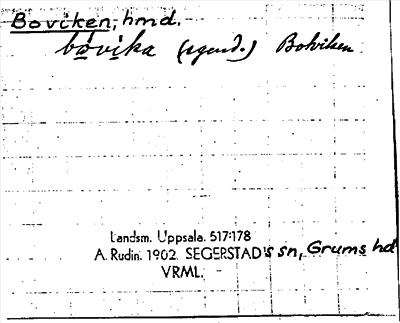 Boviken, hmd.
bòvika (agend.) Bohviken
Landsm. Uppsala. 517:178
A. Rudin. 1902. SEGERSTAD's sn, Grums hd
VRML.